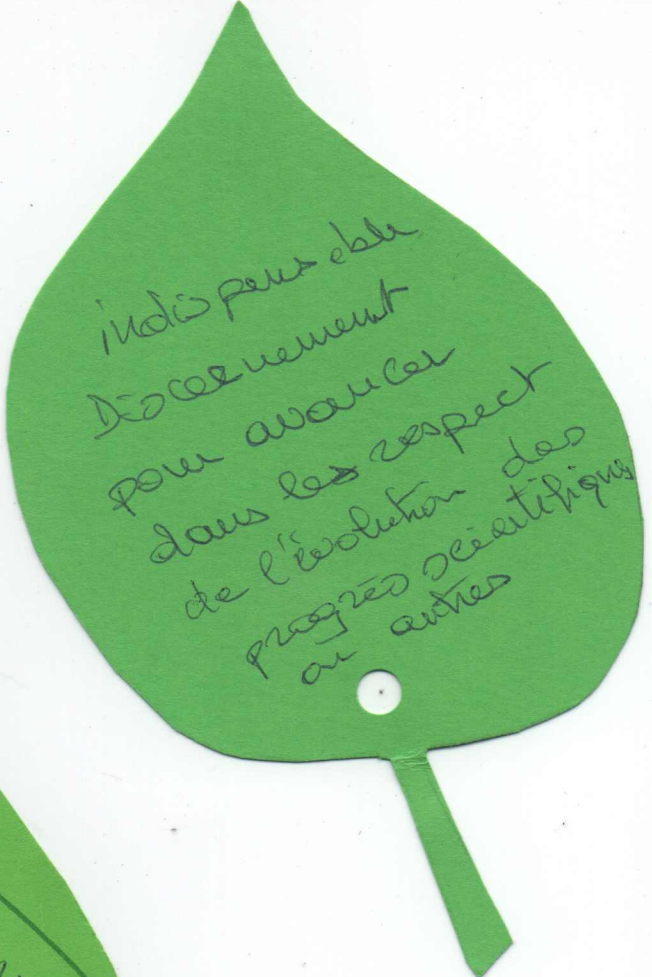 indispensable
Discernement
pour avancer
dans les respect
de l'évolution des
progrès scientifiques
ou autres